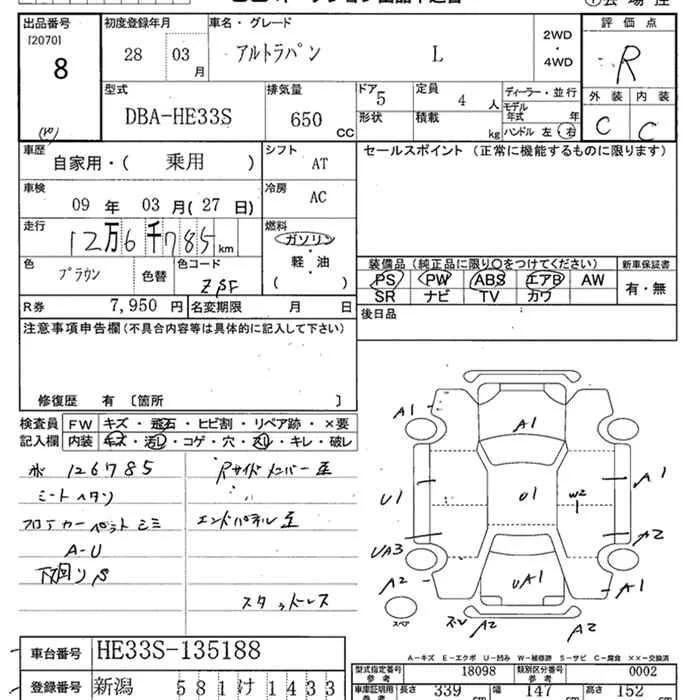 出品番号 初度登録年月 車名・グレード 評価点
[2070] 28 03 月 アルトラパン L 2WD ・ 4WD R
8
型式 排気量 ドア 5 定員 4 人 ディーラー・並行 外装 内装
DBA-HE33S 650 CC 形状 積載 kg モデル年式 年 C C
ハンドル 左 右
車歴 シフト セールスポイント(正常に機能するものに限ります)
自家用・( 乗用 ) AT
車検 冷房
09 年 03 月(27 日) AC
走行 燃料
12万6千785 km ガソリン
軽・油
( )
色 ブラウン 色替 色コード ZSF
装備品(純正品に限り○をつけてください) 新車保証書
PS PW ABS エアB AW 有・無
SR ナビ TV カワ
R券 7,950 円 名変期限 月 日
後日品
注意事項申告欄(不具合内容等は具体的に記入して下さい)
修復歴 有 〔箇所 〕
検査員 FW キズ・飛石・ヒビ割・リペア跡・×要
記入欄 内装 キズ・汚レ・コゲ・穴・スレ・キレ・破レ
126785 Rサイドメンバー
シートヘタリ
フロアカーペット エンドパネル
A-U
下回りS
スタッドレス
A1 A1 A1
U1 U1 W2
UA3 A2
A2 UA1 A1
スペア A2 A2
A-キズ E-エクボ U-凹み W-補修跡 S-サビ C-腐食 ××-交換済
車台番号 HE33S-135188
型式指定番号 参考 18098 類別区分番号 参考 0002
登録番号 新潟 581 け 1433
車庫証明用 参考 長さ 339 cm 幅 147 cm 高さ 152 cm